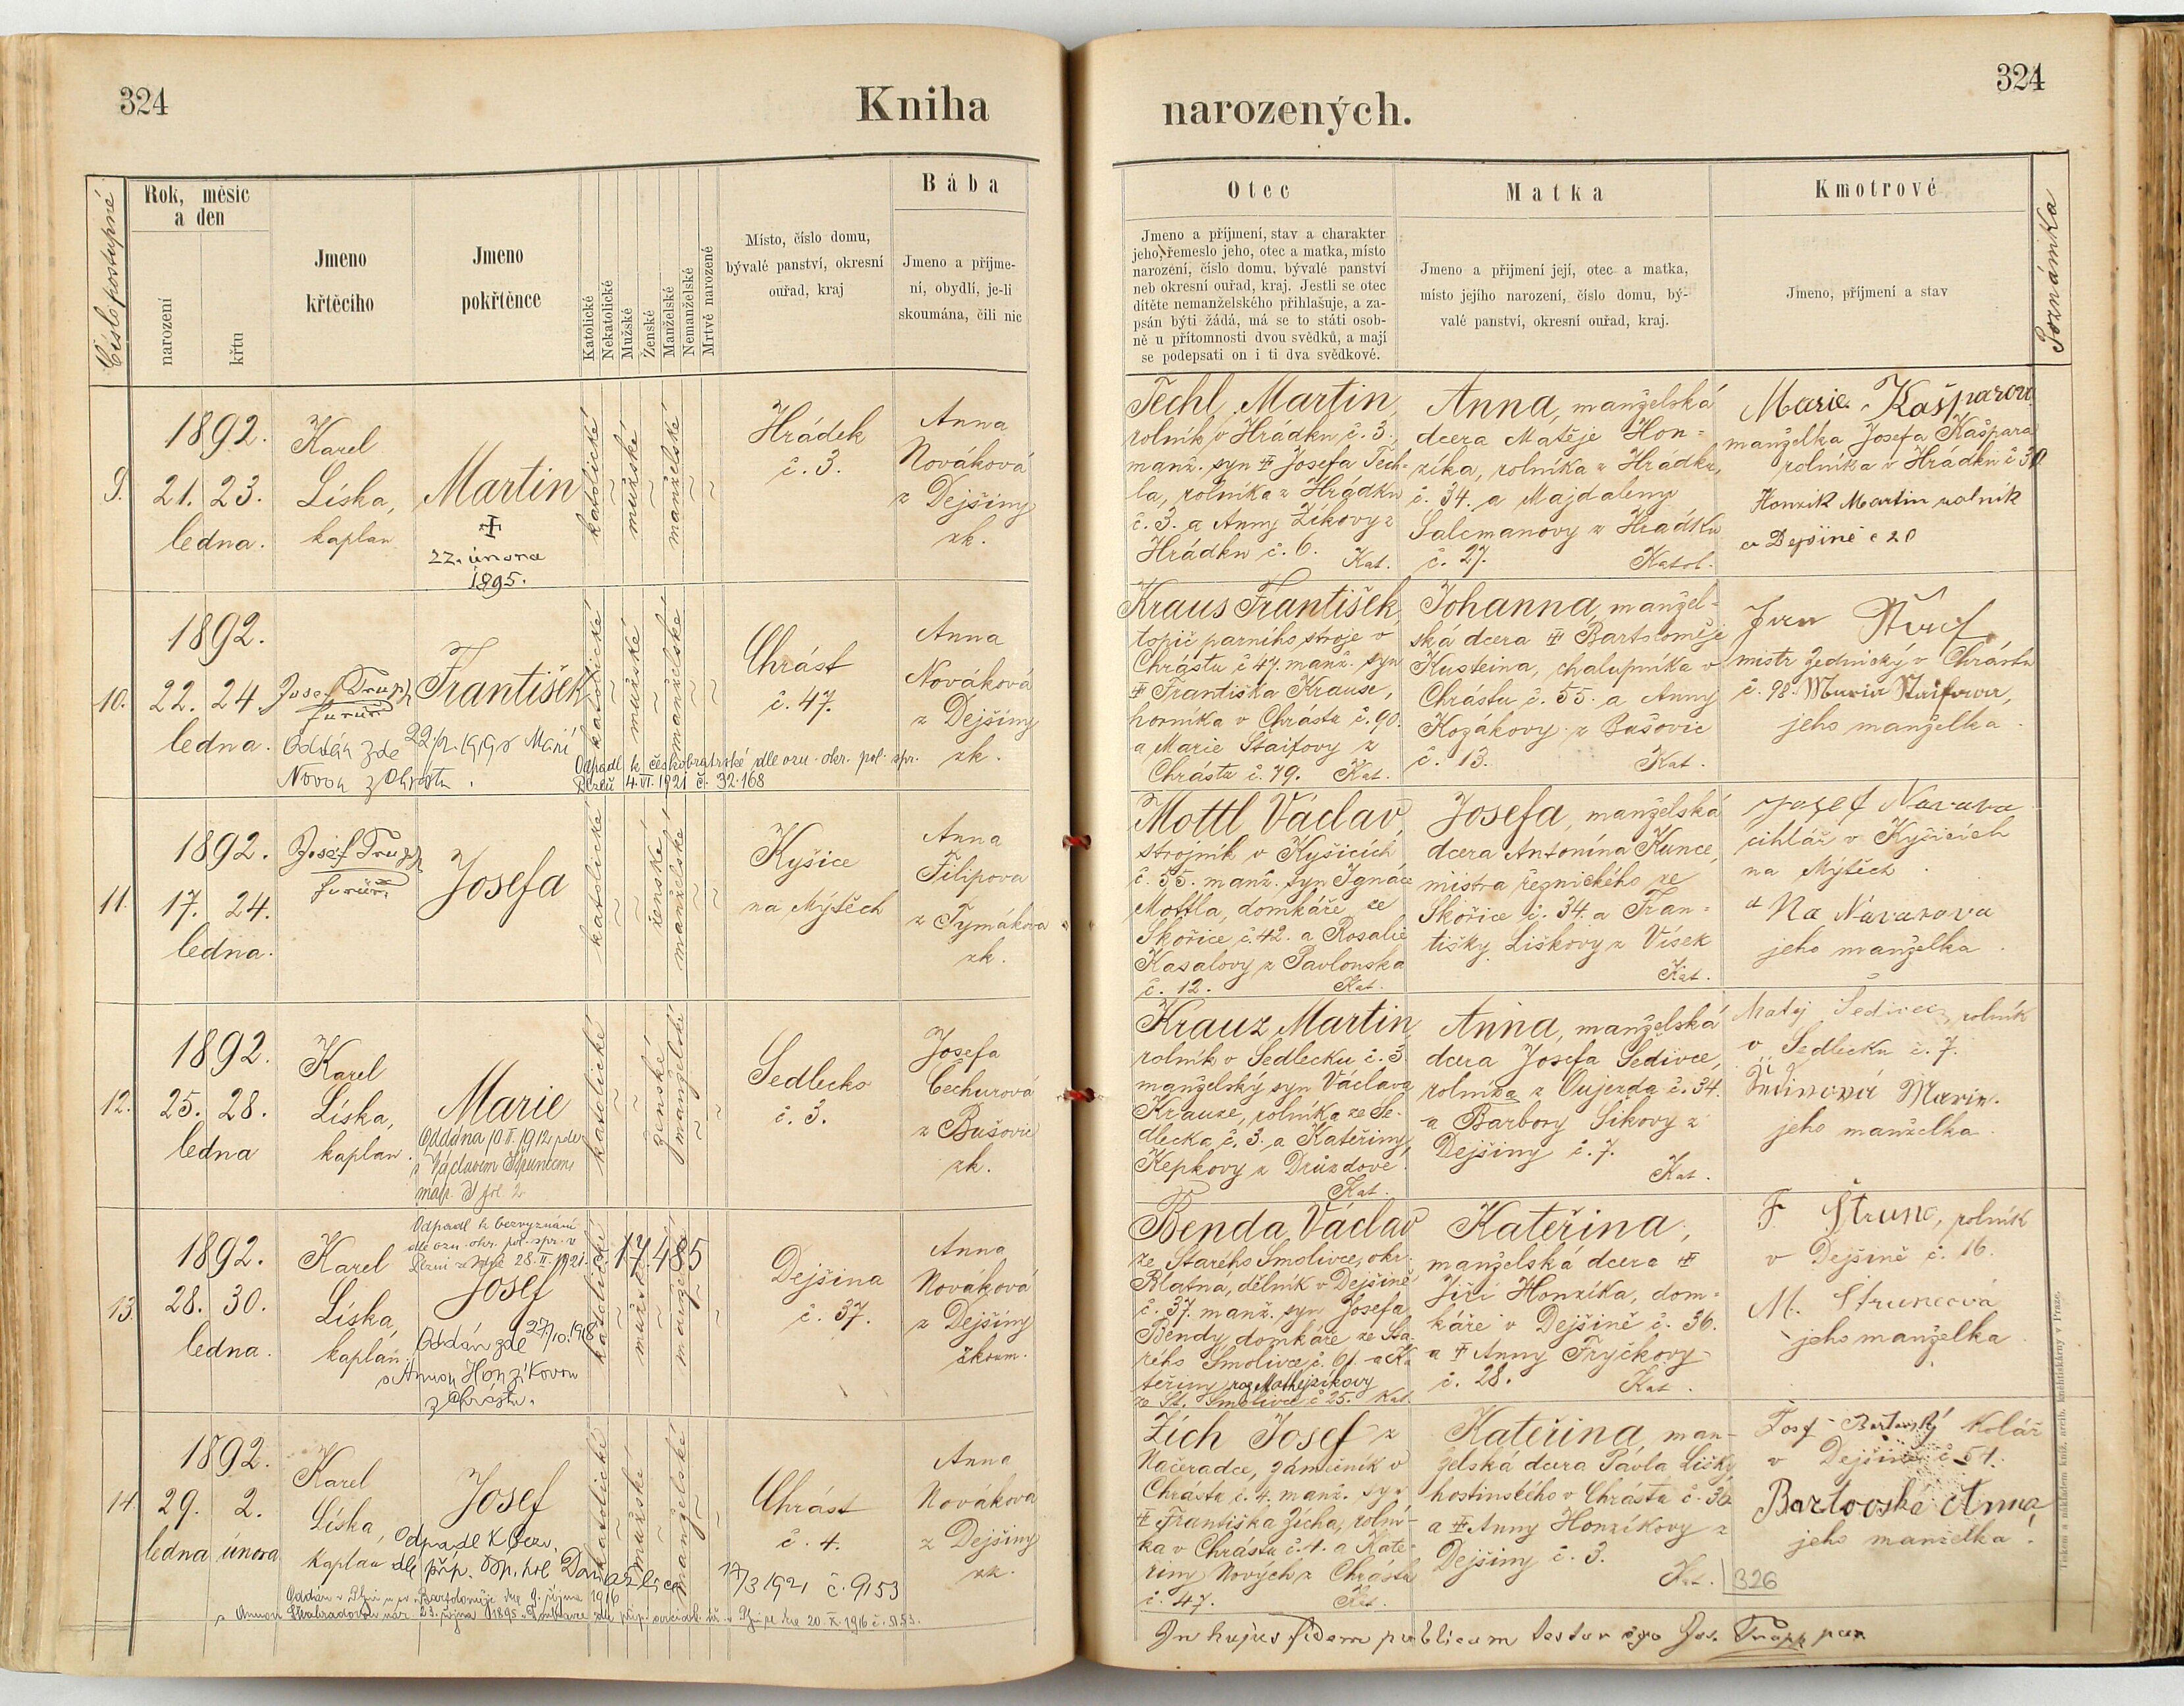 324
Kniha
narozených.
324
Číslo postupné
Rok, měsíc
a den
narození
křtu
Jmeno
křtěcího
Jmeno
pokřtěnce
Katolické
Nekatolické
Mužské
Ženské
Manželské
Nemanželské
Mrtvě narozené
Místo, číslo domu,
bývalé panství, okresní
ouřad, kraj
Bába
Jmeno a příjme-
ní, obydlí, je-li
skoumána, čili nic
Otec
Jmeno a příjmení, stav a charakter
jeho, řemeslo jeho, otec a matka, místo
narození, číslo domu, bývalé panství
neb okresní ouřad, kraj. Jestli se otec
dítěte nemanželského přihlašuje, a za-
psán býti žádá, má se to státi osob-
ně u přítomnosti dvou svědků, a mají
se podepsati on i ti dva svědkové.
Matka
Jmeno a přijmení její, otec a matka,
místo jejího narození, číslo domu, bý-
valé panství, okresní ouřad, kraj.
Kmotrové
Jmeno, příjmení a stav
Poznámka
9.
1892.
21. 23.
ledna.
Karel
Líska,
kaplan
Martin
22. února
1895.
katolické
mužské
manželské
Hrádek
č. 3.
Anna
Nováková
z Dejšiny
zk.
Techl Martin,
rolník v Hrádku č. 3.,
manž. syn Josefa Tech-
la, rolníka z Hrádku
č. 3. a Anny Zíkovy z
Hrádku č. 6. Kat.
Anna, manželská
dcera Matěje Hon-
zíka, rolníka z Hrádku,
č. 34. a Majdaleny
Salcmanovy z Hrádku
č. 27. Katol.
Marie Kašparova
manželka Josefa Kašpara
rolníka v Hrádku č 30
Honzik Martin rolník
z Dejšině č 20
10.
1892.
22. 24.
ledna.
Josef Trapp
farář
František
Oddán zde 22/2 1918 s Marií
Novou z Chrástu.
katolické
mužské
manželské
Odpadl k českobratrské dle ozn. okr. pol. spr.
Plzeň 4. VI. 1921 č. 32.168
Chrást
č. 47.
Anna
Nováková
z Dejšiny
zk.
Kraus František,
topič parního stroje v
Chrástu č 47. manž. syn
Františka Krause,
horníka v Chrástu č. 90.
a Marie Štaifovy z
Chrástu č. 79. Kat.
Johanna, manžel-
ská dcera Bartoloměje
Kusteina, chalupníka v
Chrástu č. 55. a Anny
Kozákovy z Bušovic
č. 13. Kat.
mistr zednický v Chrástu
č. 98.
jeho manželka.
11.
1892.
17. 24.
ledna.
Josef Trapp
farář.
Josefa
katolické
ženské
manželské
Kyšice
na Mýtěch
Anna
Filipova
z Tymákova
zk.
Mottl Václav,
strojník v Kyšicích
č. 55. manž. syn Ignáce
Mottla, domkáře ze
Skořice č. 42. a Rosalie
Kasalovy z Pavlonska
č. 12. Kat.
Josefa, manželská
dcera Antonína Kunce,
mistra řeznického ze
Skořice č. 34. a Fran-
tišky Liškovy z Vísek
Kat.
cihlář v Kyšicích
na Mýtěch
jeho manželka.
12.
1892.
25. 28.
ledna
Karel
Líska,
kaplan.
Marie
Oddána 10. II. 1912 zde
s Václavem Štruncem
katolické
ženské
manželské
Sedlecko
č. 3.
Josefa
Čechurová
z Bušovic
zk.
Krauz Martin,
rolník v Sedlecku č. 3
manželský syn Václava
Krauze, rolníka ze Se-
dlecka č. 3. a Kateřiny
Kepkovy z Druzdové.
Kat.
Anna, manželská
dcera Josefa Šedivce,
rolníka z Oujezda č. 34.
a Barbory Sikovy z
Dejšiny č. 7.
Kat.
Matěj Šedivec, rolník
v Sedlecku č. 7.
Marie.
jeho manželka.
13.
1892.
28. 30.
ledna.
Karel
Líska,
kaplan.
Odpadl k bezvyznání
dle ozn. okr. pol. spr. v
Plzni ze dne 28. II. 1921.
17.485
Josef
Oddán zde 27/10. 1918
s Annou Honzíkovou
z Chrástu.
katolické
mužské
manželské
Dejšina
č. 37.
Anna
Nováková
z Dejšiny
zkoum.
Benda Václav
ze Starého Smolivce, okr.
Blatná, dělník v Dejšině
č. 37. manž. syn Josefa
Bendy, domkáře ze Sta-
rého Smolivce č. 61. a Ka-
teřiny
ze St. Smolivce č 25. Kat.
Kateřina,
manželská dcera
Jiří Honzíka, dom-
káře v Dejšině č. 36.
a Anny Fryčkovy
č. 28. Kat.
F Štrunc, rolník
v Dejšině č. 16.
M. Štruncová
jeho manželka
14.
1892.
29. 2.
ledna února
Karel
Líska,
kaplan
Josef
Odpadl k bezv.
17/3 1921 č. 9153
katolické
mužské
manželské
Chrást
č. 4.
Anna
Nováková
z Dejšiny
zk.
Zích Josef z
Načeradce, zámečník v
Chrástu č. 4. manž. syn
Františka Zícha, rolní-
ka v Chrástu č. 4. a Kate-
řiny Nových z Chrástu
č. 47. Kat.
Kateřina, man-
želská dcera Pavla Lišky,
hostinského v Chrástu č. 36
a Anny Honzíkovy z
Dejšiny č. 3.
Kat. 326
kolář
v Dejšině č 51.
Anna,
jeho manželka.
In hujus fidem publicam testor ego Jos. Trapp
Tiskem a nákladem knih. arcib. kněhtiskárny v Praze.